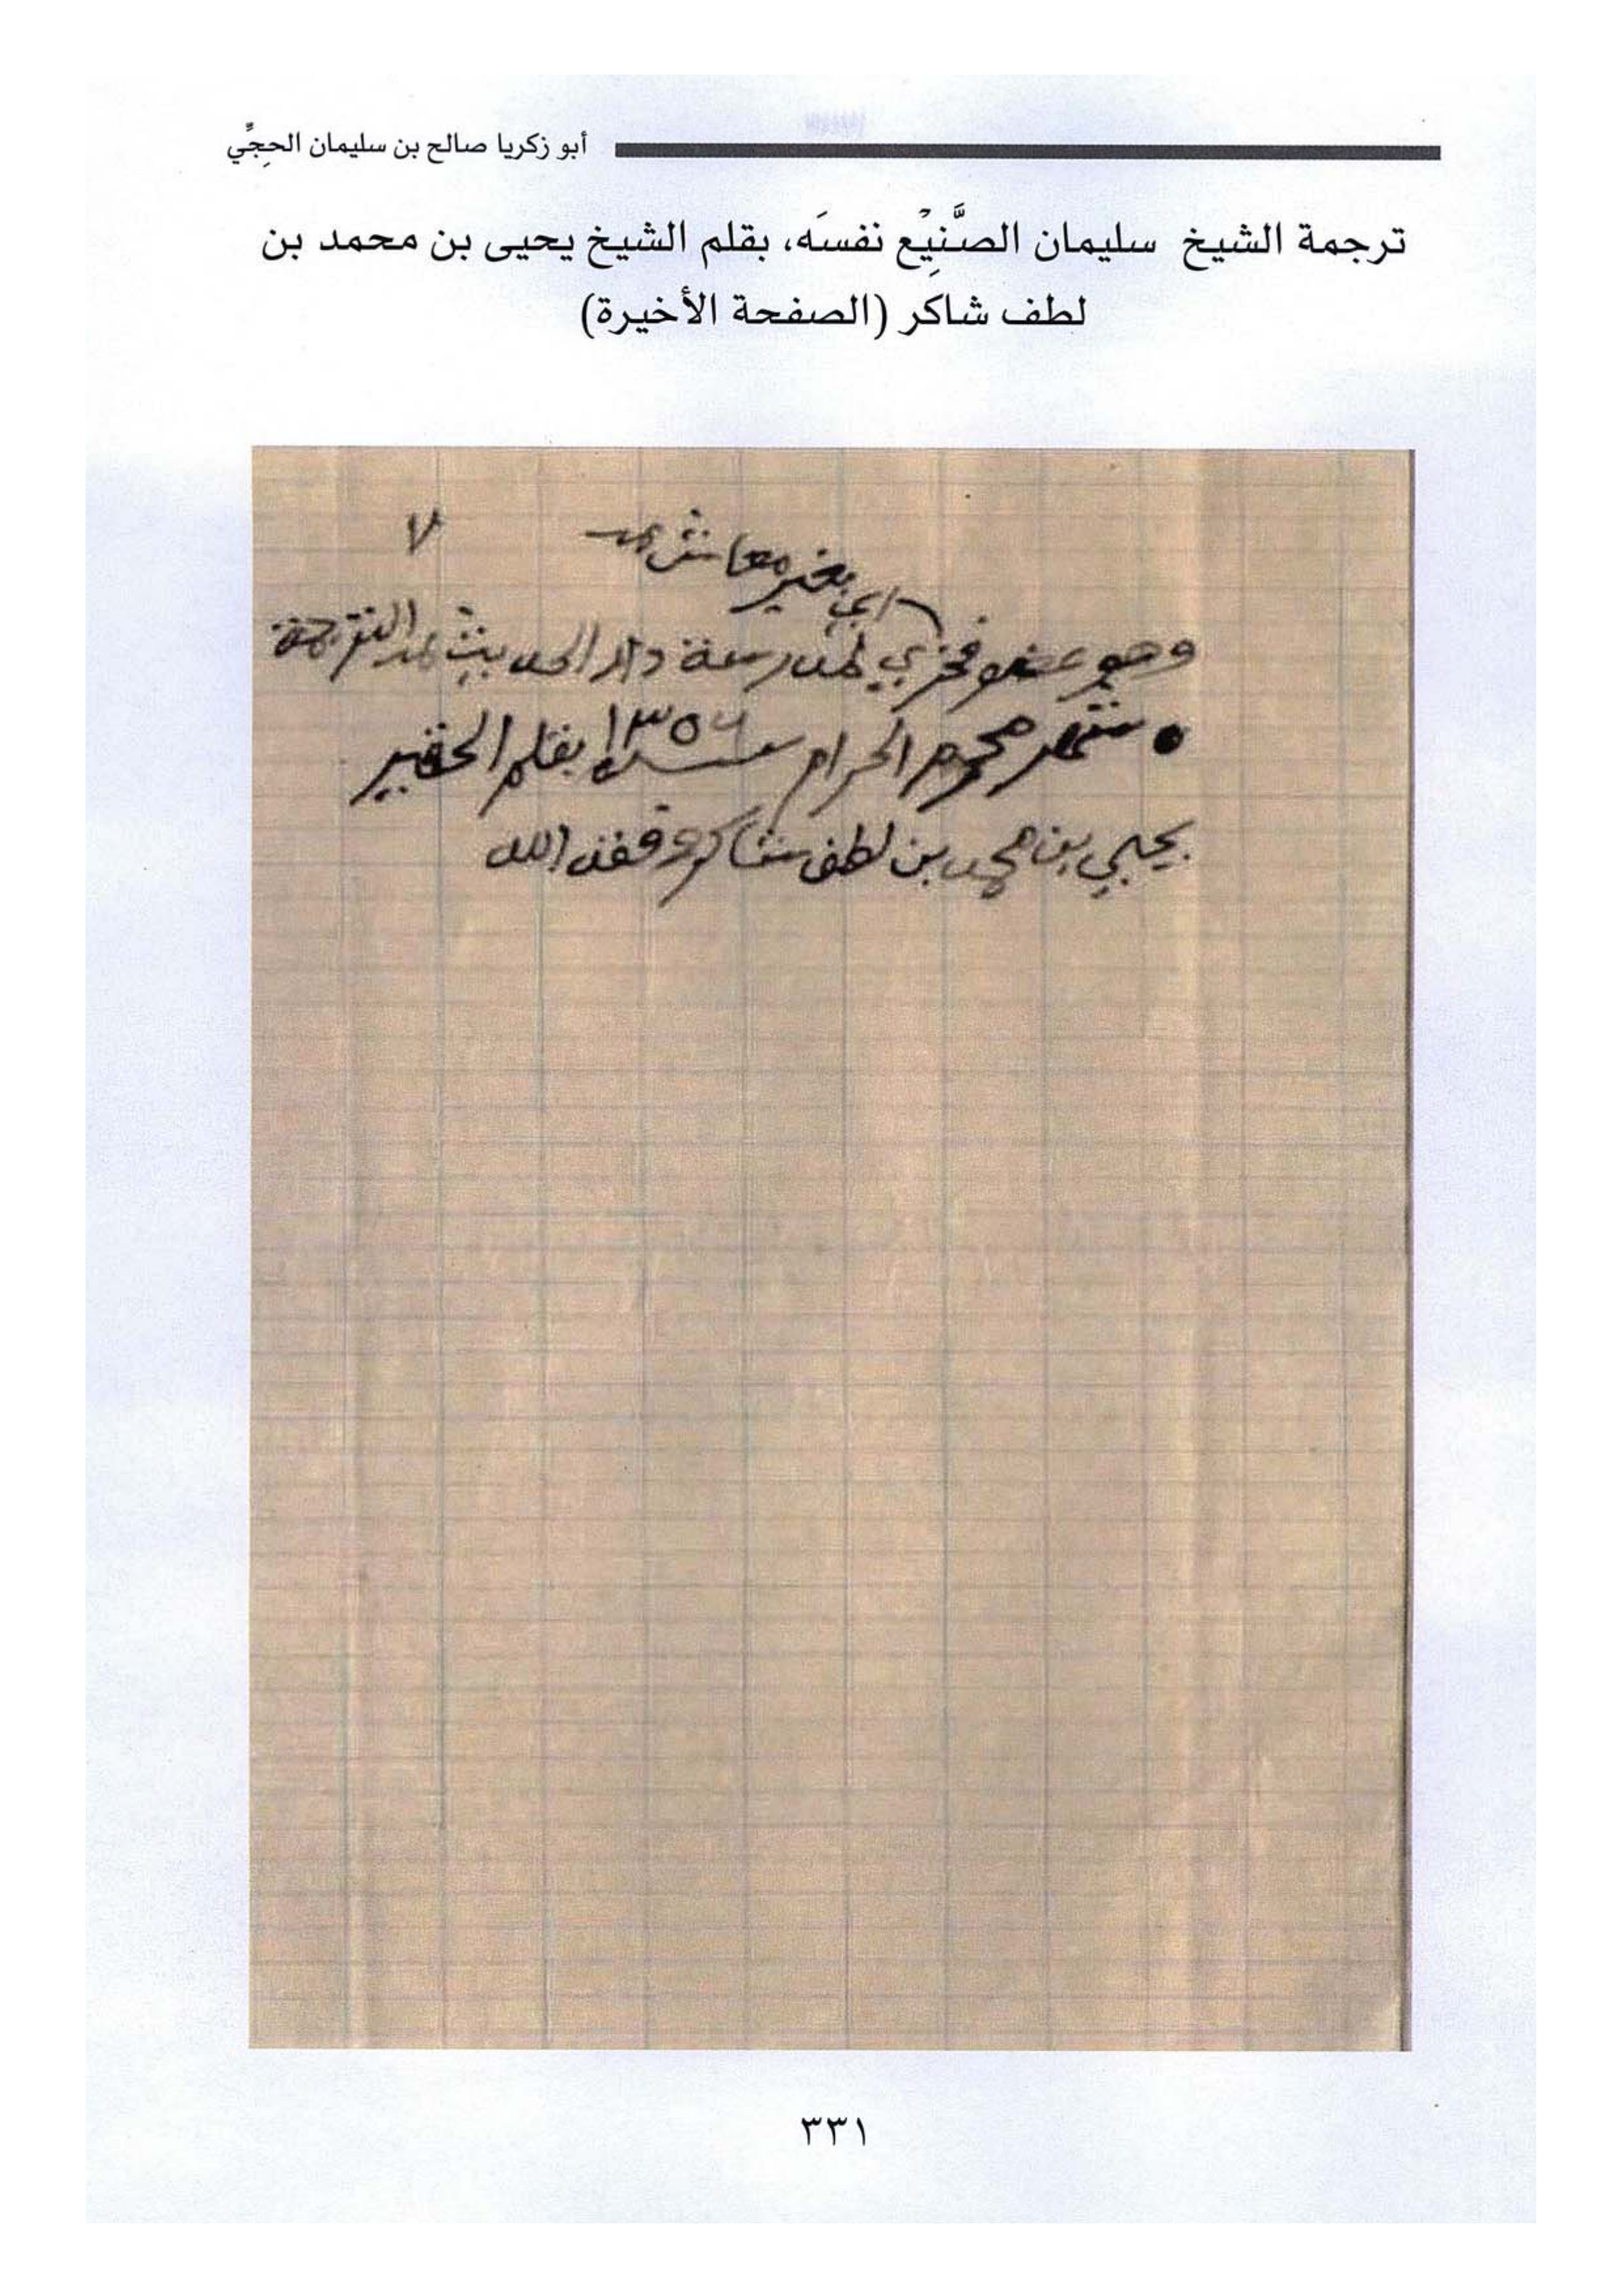 أبو زكريا صالح بن سليمان الحجِّي
ترجمة الشيخ سليمان الصَّنِيْع نفسَه، بقلم الشيخ يحيى بن محمد بن
لطف شاكر (الصفحة الأخيرة)
٧
اي بغير معاش
وهو عضو فخري لمدرسة دار الحديث
شهر محرم الحرام سنة ١٣٥٦ بقلم الحقير
يحيى بن محمد بن لطف شاكر وفقه الله
٣٣١